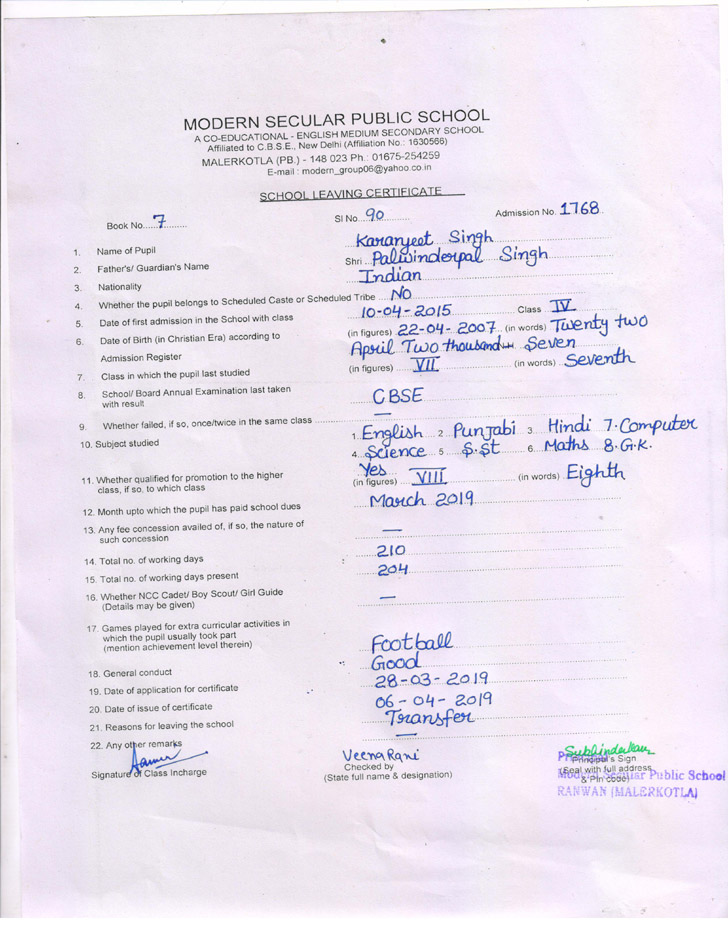 MODERN SECULAR PUBLIC SCHOOL
A CO-EDUCATIONAL - ENGLISH MEDIUM SECONDARY SCHOOL
Affiliated to C.B.S.E., New Delhi (Affiliation No.: 1630566)
MALERKOTLA (PB.) - 148 023 Ph.: 01675-254259
E-mail : modern_group06@yahoo.co.in
SCHOOL LEAVING CERTIFICATE
Book No. 7 Sl No. 90 Admission No. 1768
1. Name of Pupil Karanjeet Singh
2. Father's/ Guardian's Name Shri Palwinderpal Singh
3. Nationality Indian
4. Whether the pupil belongs to Scheduled Caste or Scheduled Tribe No
5. Date of first admission in the School with class 10-04-2015 Class IV
6. Date of Birth (in Christian Era) according to (in figures) 22-04-2007 (in words) Twenty two
Admission Register April Two thousand Seven
7. Class in which the pupil last studied (in figures) VII (in words) Seventh
8. School/ Board Annual Examination last taken
with result CBSE
9. Whether failed, if so, once/twice in the same class —
10. Subject studied 1. English 2 Punjabi 3 Hindi 7. Computer
4. Science 5 S.St 6. Maths 8. G.K.
11. Whether qualified for promotion to the higher Yes
class, if so, to which class (in figures) VIII (in words) Eighth
12. Month upto which the pupil has paid school dues March 2019
13. Any fee concession availed of, if so, the nature of
such concession —
14. Total no. of working days 210
15. Total no. of working days present 204
16. Whether NCC Cadet/ Boy Scout/ Girl Guide —
(Details may be given)
17. Games played for extra curricular activities in
which the pupil usually took part
(mention achievement level therein) Football
18. General conduct Good
19. Date of application for certificate 28-03-2019
20. Date of issue of certificate 06-04-2019
21. Reasons for leaving the school Transfer
22. Any other remarks —
Veena Rani
Signature of Class Incharge Checked by Principal's Sign
(State full name & designation) (Seal with full address
& Pin code)
Public School
RANWAN (MALERKOTLA)